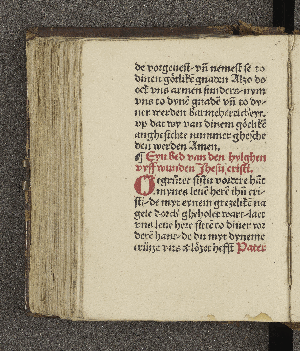 de vorgeuest· vn̄ nemest se to
dinen gotlikē gnaden Alzo do
ock vns armen sunders· nym
vns to dynē gnadē vn̄ to dy⸗
ner werden barmeherticheyt·
vp dat wy van dinem gotlikē
anghesichte nummer ghesche
den werden Amen.
¶ Eyn bed van den hylghen
vyff wunden Jhesu cristi.
Gegrutet sistu vordere hāt
mynes leuē herē ihū cri⸗
sti· de myt eynem grezelikē na
gele dorch ghebolet wart· laet
vns leue here stetē to diner vor
derē hant· de du myt dyneme
crutze vns vorlozet hefst Pater